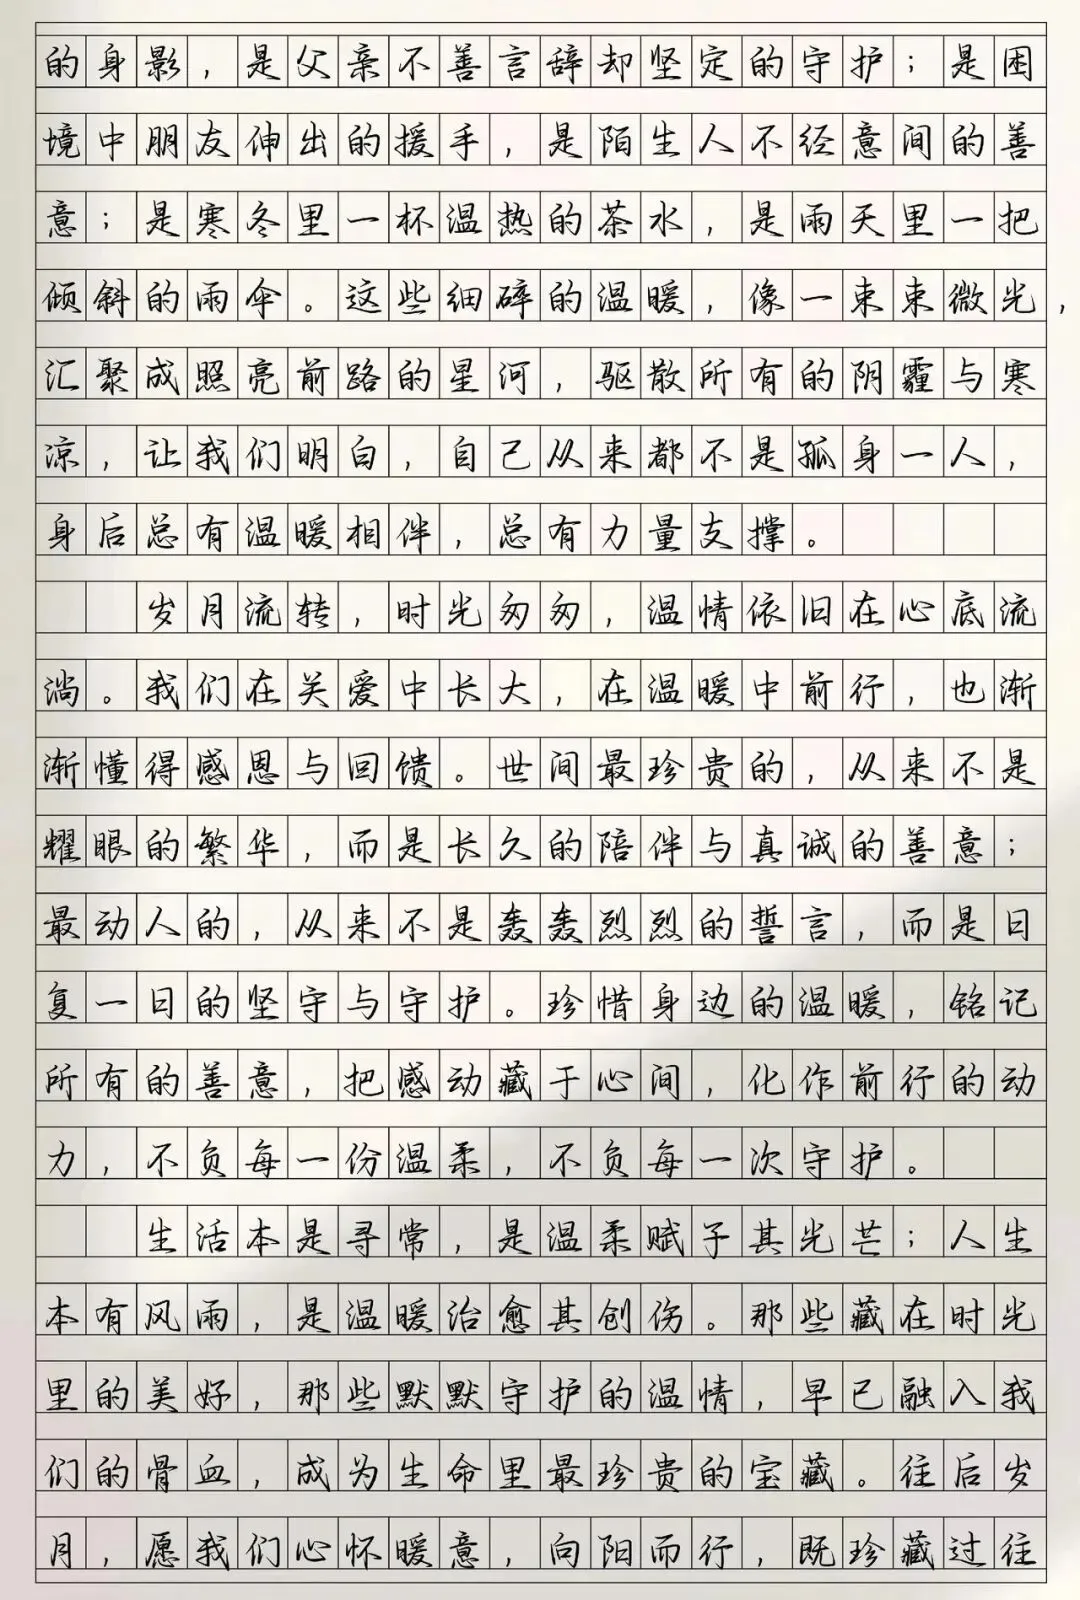 的身影，是父亲不善言辞却坚定的守护；是困
境中朋友伸出的援手，是陌生人不经意间的善
意；是寒冬里一杯温热的茶水，是雨天里一把
倾斜的雨伞。这些细碎的温暖，像一束束微光，
汇聚成照亮前路的星河，驱散所有的阴霾与寒
凉，让我们明白，自己从来都不是孤身一人，
身后总有温暖相伴，总有力量支撑。
岁月流转，时光匆匆，温情依旧在心底流
淌。我们在关爱中长大，在温暖中前行，也渐
渐懂得感恩与回馈。世间最珍贵的，从来不是
耀眼的繁华，而是长久的陪伴与真诚的善意；
最动人的，从来不是轰轰烈烈的誓言，而是日
复一日的坚守与守护。珍惜身边的温暖，铭记
所有的善意，把感动藏于心间，化作前行的动
力，不负每一份温柔，不负每一次守护。
生活本是寻常，是温柔赋予其光芒；人生
本有风雨，是温暖治愈其创伤。那些藏在时光
里的美好，那些默默守护的温情，早已融入我
们的骨血，成为生命里最珍贵的宝藏。往后岁
月，愿我们心怀暖意，向阳而行，既珍藏过往